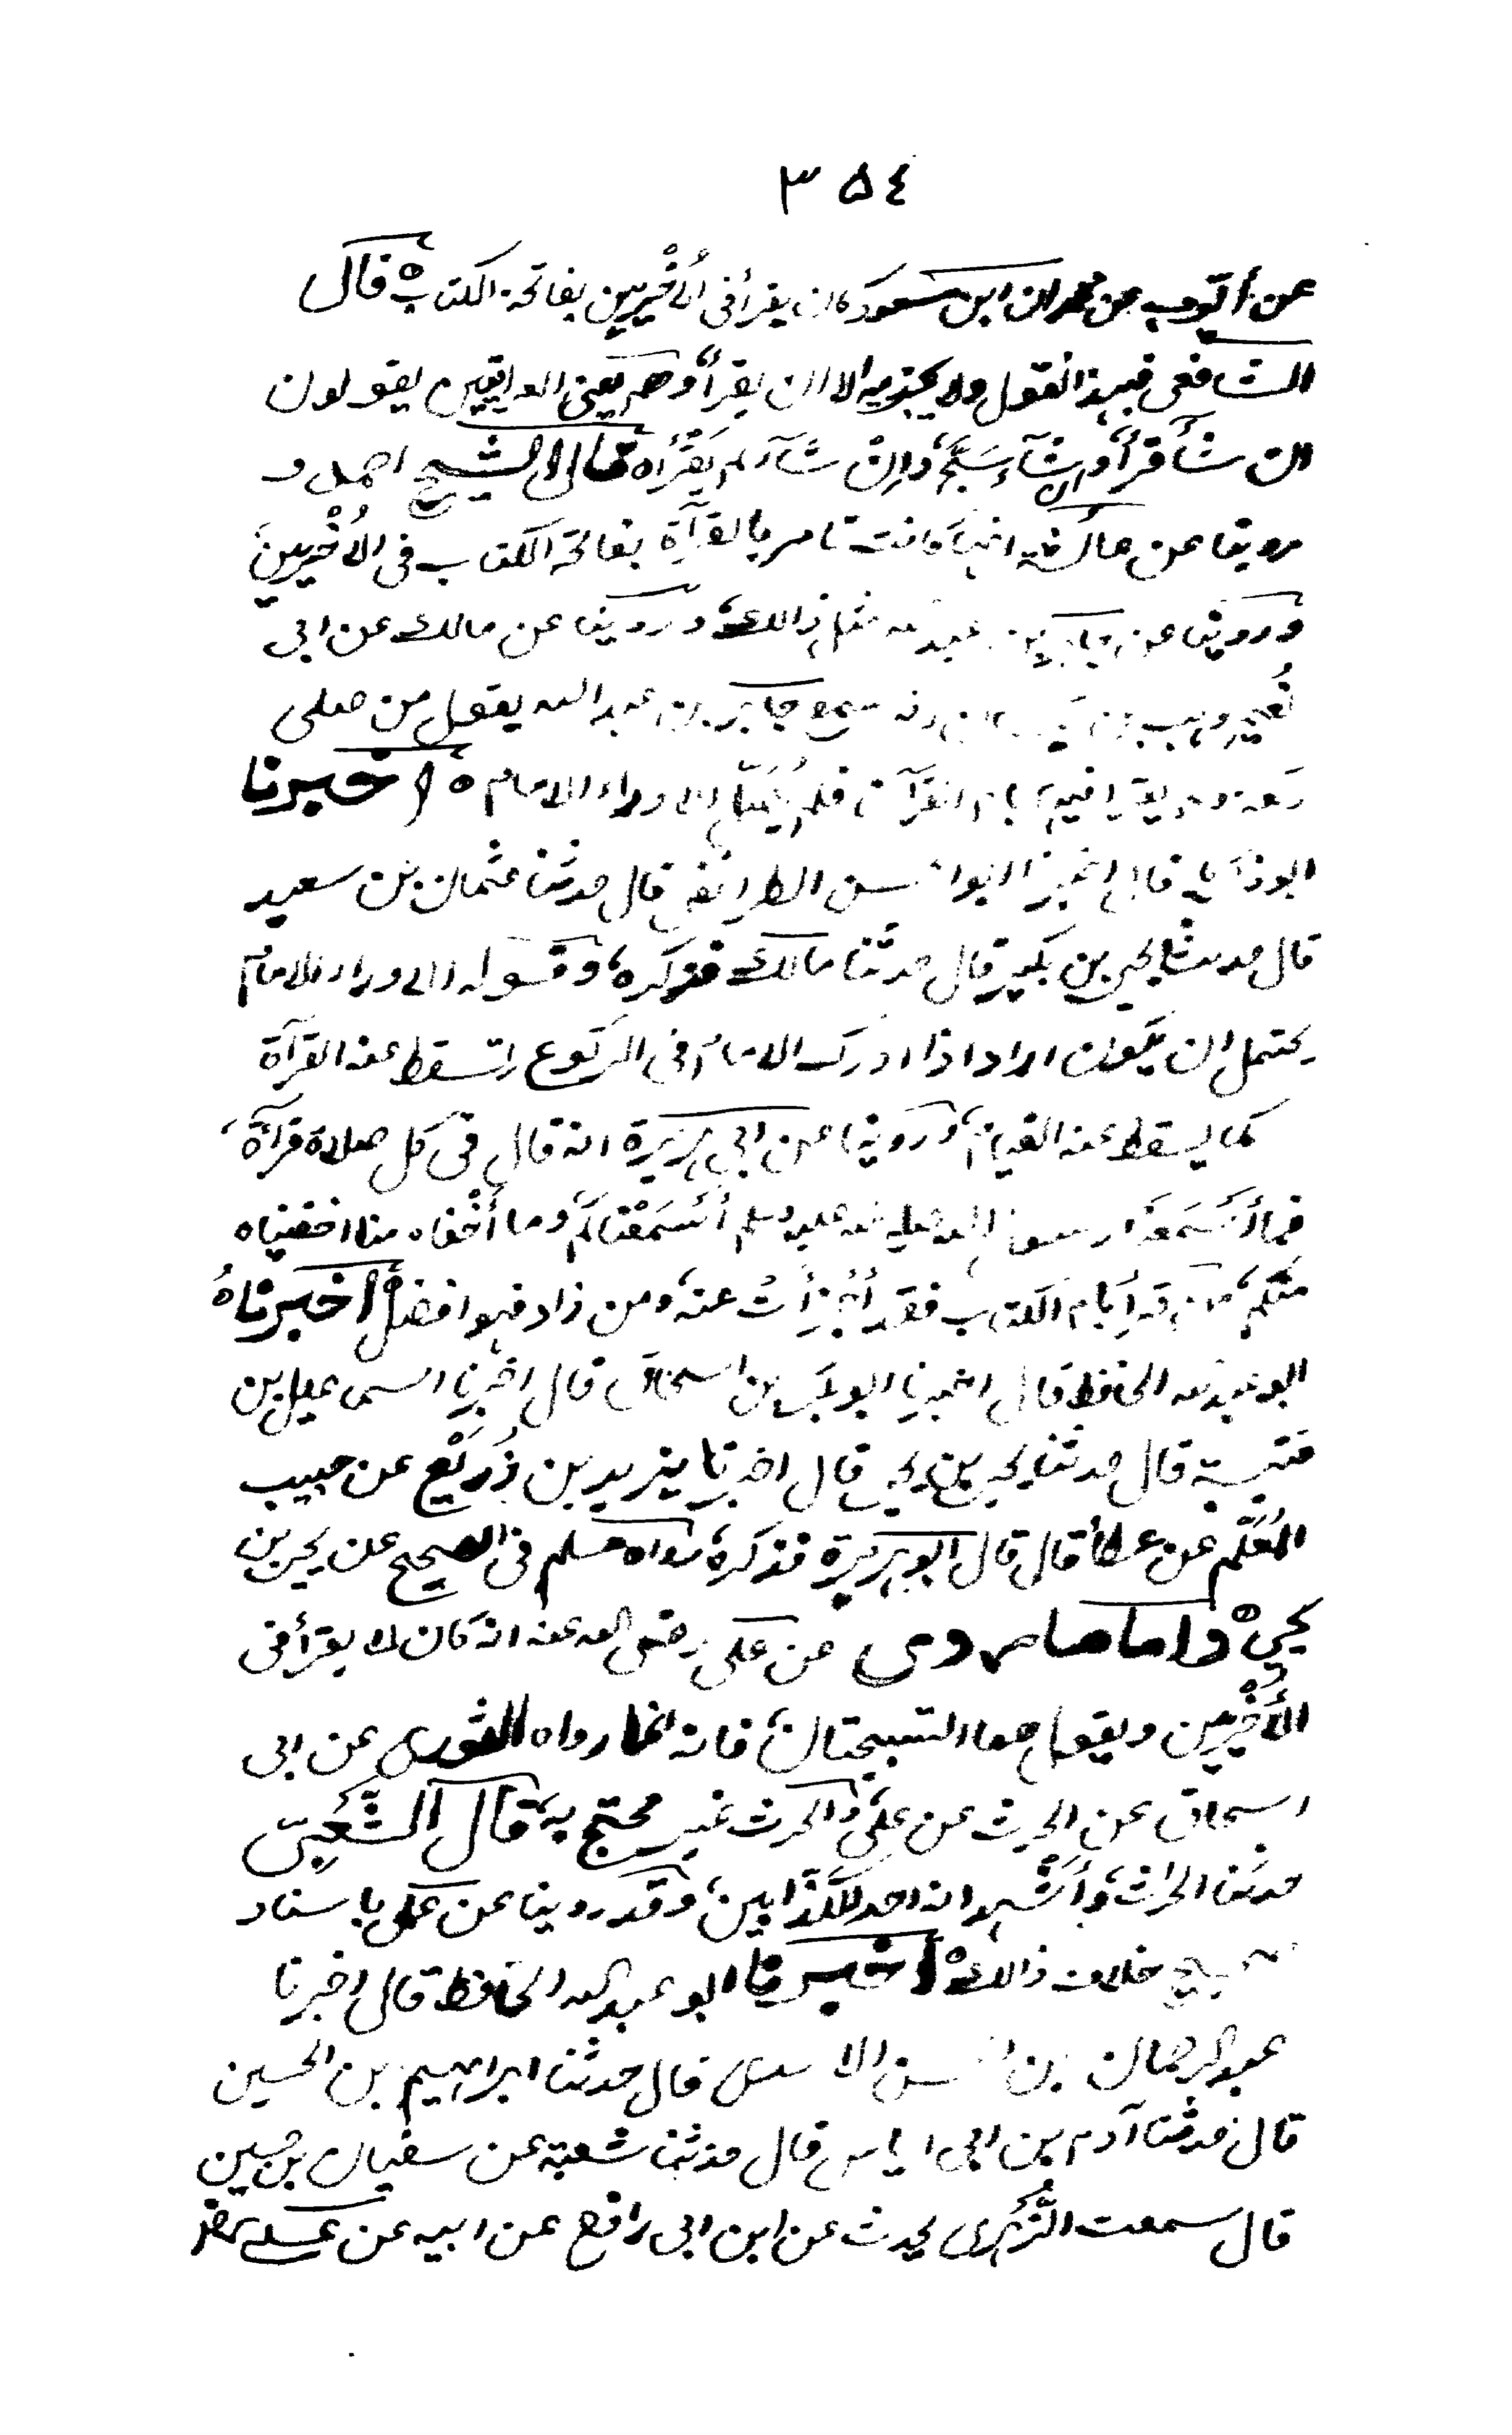 ٣٥٤
عن أيّوب عن محمد ان ابن مسعود كان يقرأ فى الأُخْرَيين بفاتحة الكتاب ه قال
الشافعى فبهذا نقول ولا يجزيه الا ان يقرأ، وهم يعنى العراقيين يقولون
ان شأ قرأ وان شآء سَبَّح، وَاِنْ شآء لم يَقْرَأ ه قال الشيخ احمد و
روينا عن عائشة انها كانت تامر بالقرآة بفاتحة الكتاب فى الأُخْرَيينِ
وروينا عن جابر بن عبد الله مثل ذالك، وروينا عن مالك عن ابى
نُعيم وهب بن كيسان انه سمع جابر بن عبد الله يقول من صلى
ركعة ولم يقرا فيها بام القرآن فلم يُصَلّ الا وراء الامام ه اخبرنا
ابو زكريا قال اخبرنا ابو الحسن الطرائفى قال حدثنا عثمان بن سعيد
قال حدثنا يحيى بن بكير قال حدثنا مالك فذكره، وقوله الا وراء الامام
يحتمل ان يكون اراد اذا ادرك الامام فى الركوع تسقط عنه القرآة
كما يسقط عنه القيام، وروينا عن ابى هريرة انه قال فى كل صلاة قرآة،
فما أَسْمَعَنا رسول الله صلى الله عليه وسلم أَسْمَعْناكم، وما أَخْفاه منا اخفيناه
منكم، من قرأ بام الكتاب فقد أَجْزأَتْ عنه، ومن زاد فهو افضل أخبرناهُ
ابو عبد الله الحافظ قال اخبرنا ابو بكر بن اسحاق قال اخبرنا اسمعيل بن
قتيبة قال حدثنا يحيى بن يحيى قال اخبرنا يزيد بن زُرَيْع عن حبيب
المُعَلّم عن عطأ قال قال ابو هريرة فذكره، رواه مسلم فى الصحيح عن يحيى بن
يحيى ه واما ما روى عن على رضى الله عنه انه كان لا يقرأ فى
الأُخْرَيين ويقول هما التسبيحتان، فانه انما رواه الثورى عن ابى
اسحاق عن الحرث عن على، والحرث غير محتج به، قال الشَّعْبِىّ
حدثنا الحرث، وأَشْهد انه احد الكذّابين، وقد روينا عن على باسناد
صحيح خلاف ذالك ه أخبرنا ابو عبد الله الحافظ قال اخبرنا
عبد الرحمان بن الحسن الاسدى قال حدثنا ابراهيم بن الحسين
قال حدثنا آدم بن ابى اياس قال حدثنا شعبة عن سفيان بن حسين
قال سمعت الزُّهرى يحدث عن ابن ابى رافع عن ابيه عن على رضى